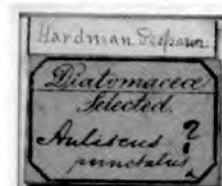 Hardman
Diatomaceæ
Selected.
Auliscus ?
punctatus